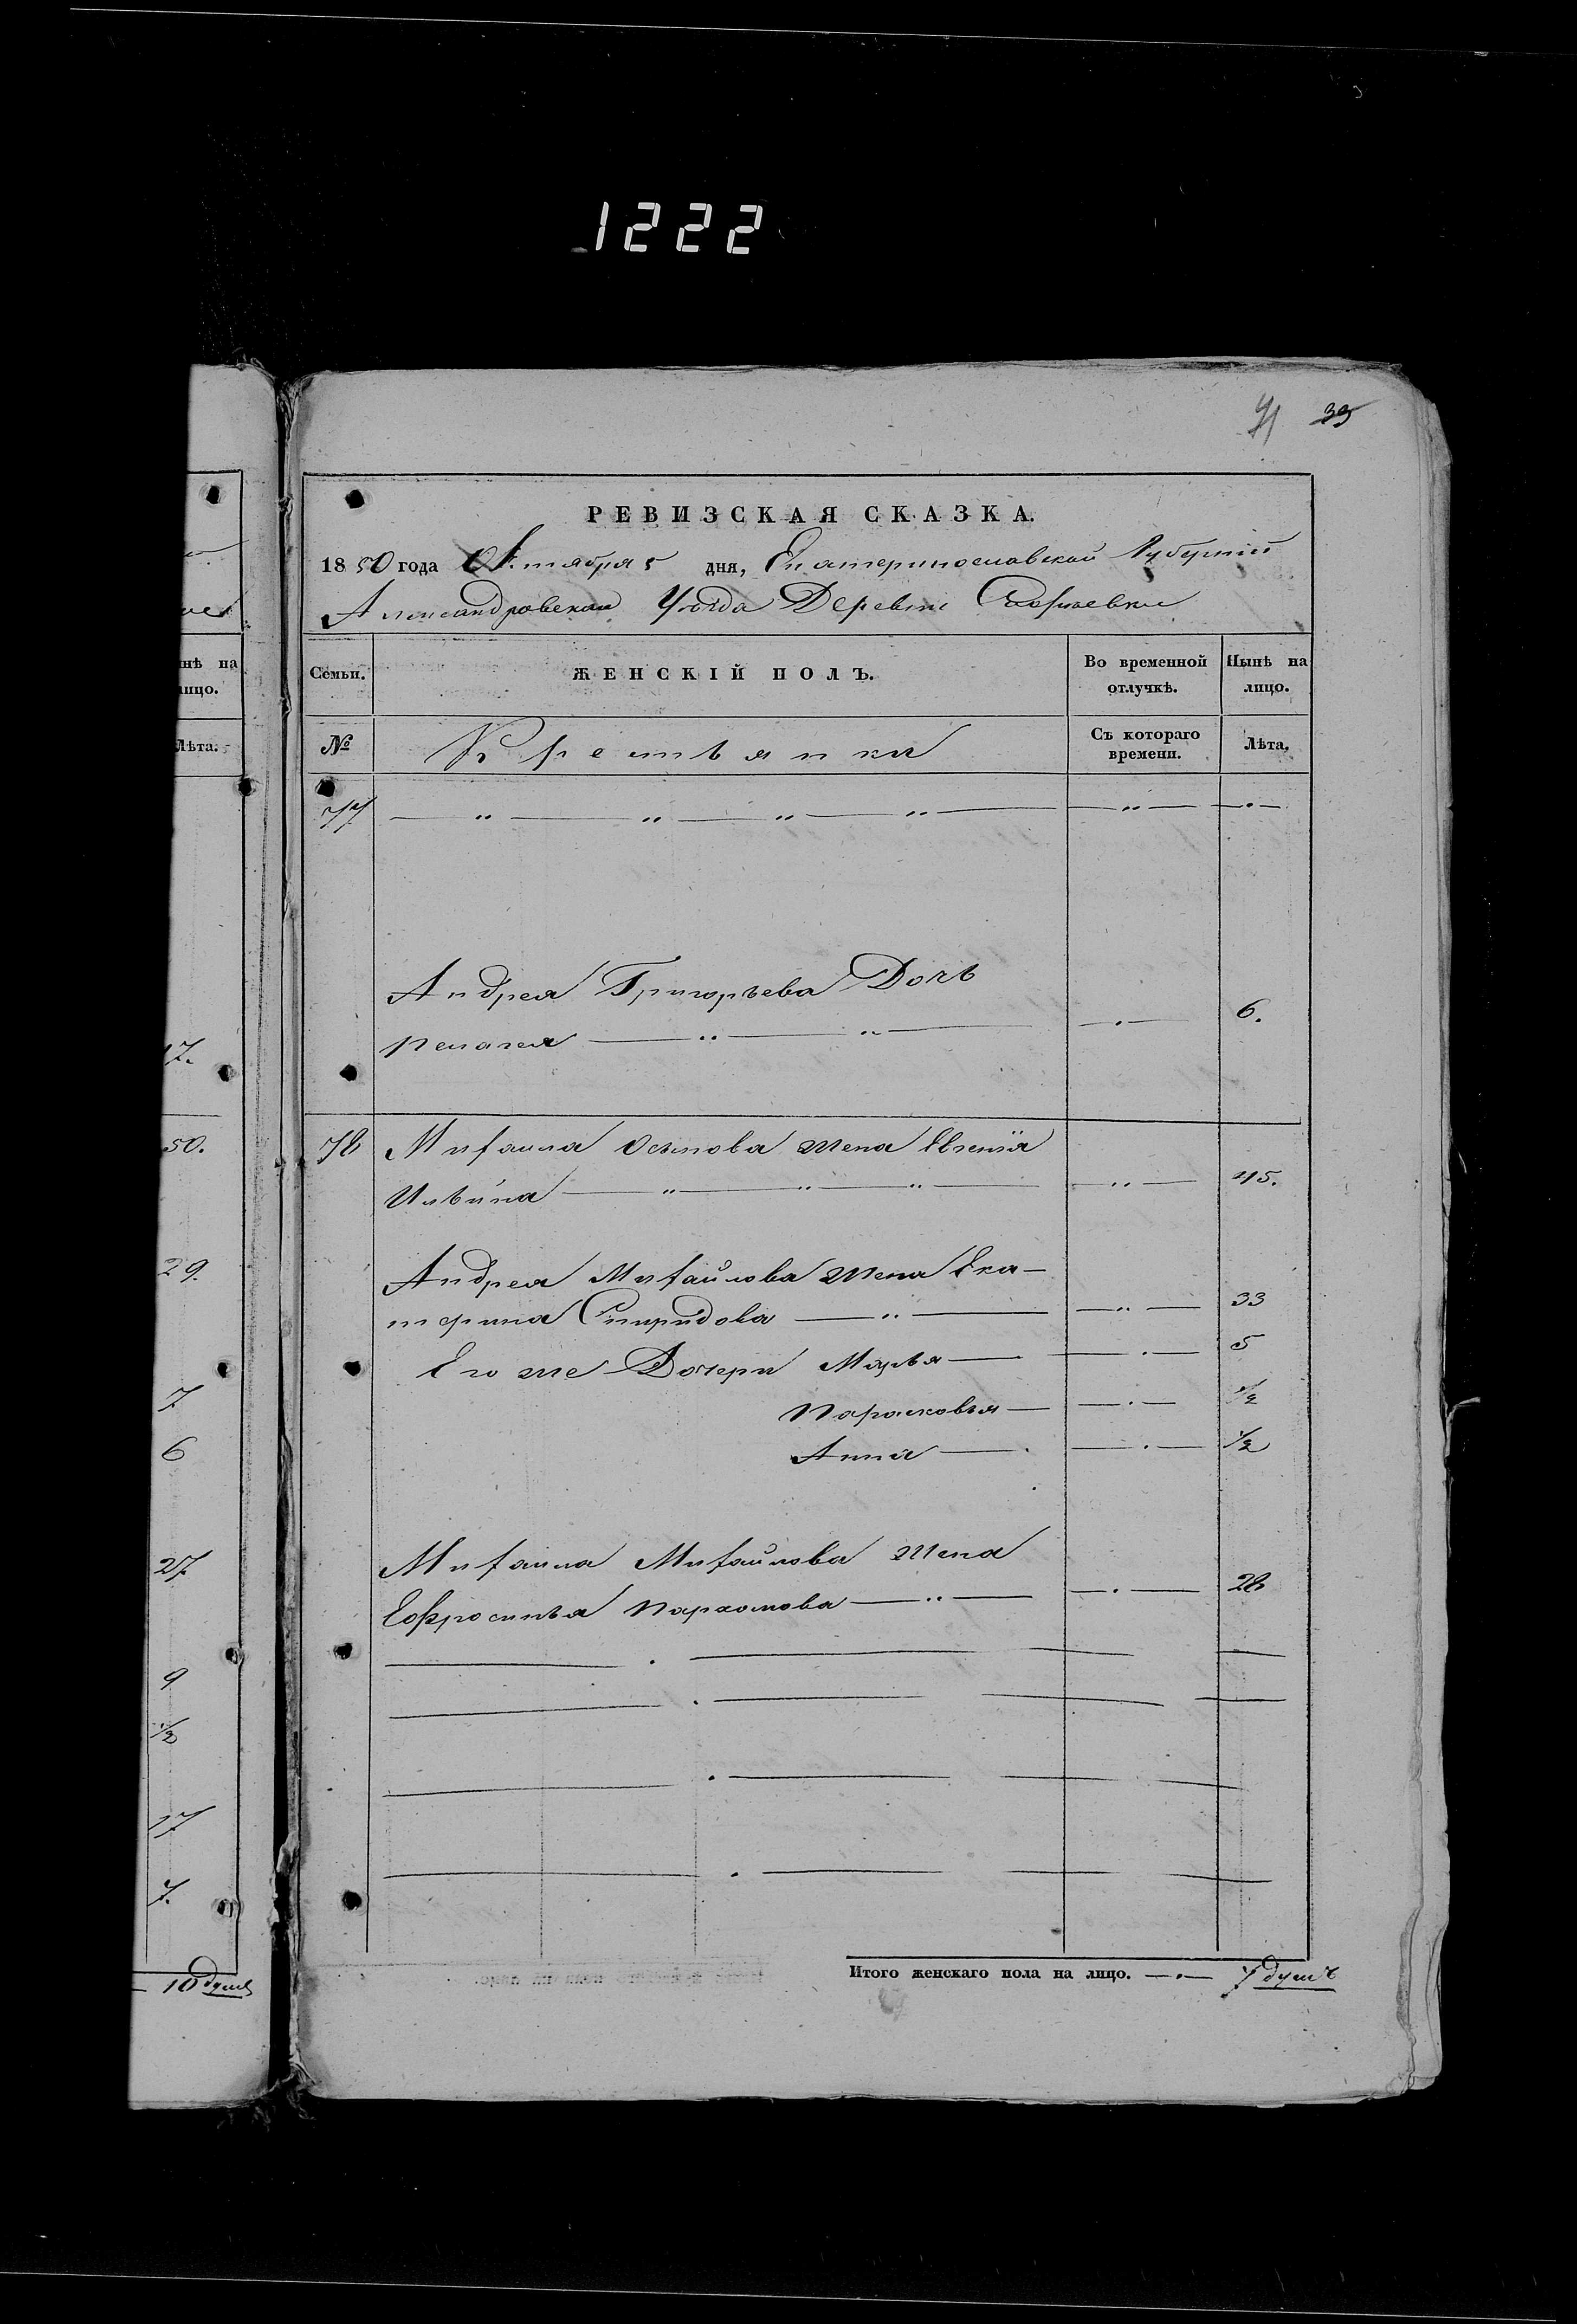 1222
41 39
РЕВИЗСКАЯ СКАЗКА.
1850 года Октября 5 дня, Екатеринославской Губерніи
Александровскаго Уѣзда Деревни Софіевки
Семьи.
ЖЕНСКІЙ ПОЛЪ.
Во временной отлучкѣ.
Нынѣ на лицо.
№
Крестьянки
Съ котораго времени.
Лѣта.
77
Андрея Григорьева Дочь
Пелагея 6.
78 Михаила Осипова жена Евгенія
Ильина 45.
Андрея Михайлова жена Ека-
терина Спиридова 33
Его же Дочери Марья 5
Парасковья 1/2
Анна 1/2
Михаила Михайлова жена
Ефросинья Пархомова 28
Итого женскаго пола на лицо. 7 душъ
нѣ на
лицо.
Лѣта.
17.
50.
29.
7
6
27
9
1/2
17
7.
10 душъ